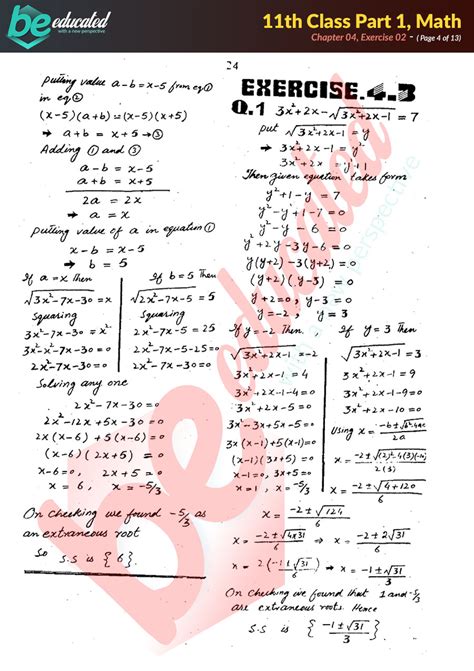 be educated
with a new perspective
11th Class Part 1, Math
Chapter 04, Exercise 02 - ( Page 4 of 13)
24
putting value a-b=x-5 from eq ①
in eq ②
(x-5)(a+b)=(x-5)(x+5)
⇒ a+b = x+5 → ③
Adding ① and ③
a-b = x-5
a+b = x+5
2a = 2x
⇒ a = x
putting value of a in equation ①
x-b = x-5
⇒ b = 5
If a=x Then
√3x²-7x-30 = x
Squaring
3x²-7x-30 = x²
3x²-x²-7x-30=0
2x²-7x-30=0
If b=5 Then
√2x²-7x-5 = 5
Squaring
2x²-7x-5 = 25
2x²-7x-5-25=0
2x²-7x-30=0
Solving any one
2x²-7x-30=0
2x²-12x+5x-30=0
2x(x-6)+5(x-6)=0
(x-6)(2x+5) = 0
x-6=0, 2x+5=0
x = 6, x = -5/3
On checking we found -5/3 as
an extraneous root
So S.S is {6}.
EXERCISE.4.3
Q.1 3x²+2x-√3x²+2x-1 = 7
put √3x²+2x-1 = y
⇒ 3x²+2x-1 = y²
3x²+2x = y²+1
Then given equation takes form
y²+1-y = 7
y²-y+1-7 = 0
y²-y-6 = 0
y²+2y-3y-6=0
y(y+2)-3(y+2)=0
(y+2)(y-3) = 0
y+2=0; y-3=0
y=-2, y = 3
If y=-2 Then.
√3x²+2x-1 = -2
3x²+2x-1 = 4
3x²+2x-1-4=0
3x²+2x-5 =0
3x²-3x+5x-5=0
3x(x-1)+5(x-1)=0
(x-1)(3x+5) = 0
x-1=0, 3x+5=0
x=1, x=-5/3
If y=3 Then
√3x²+2x-1 = 3
3x²+2x-1 = 9
3x²+2x-1-9=0
3x²+2x-10=0
Using x = -b±√b²-4ac / 2a
x = -2±√(2)²-4(3)(-10) / 2(3)
x = -2±√4+120 / 6
x = -2±√124 / 6
⇒ x = -2±√4x31 / 6 ⇒ x = -2±2√31 / 6
x = 2(-1±√31) / 6 ⇒ x = -1±√31 / 3
On checking we found that 1 and -5/3
are extraneous roots. Hence
S.S is { -1±√31 / 3 }